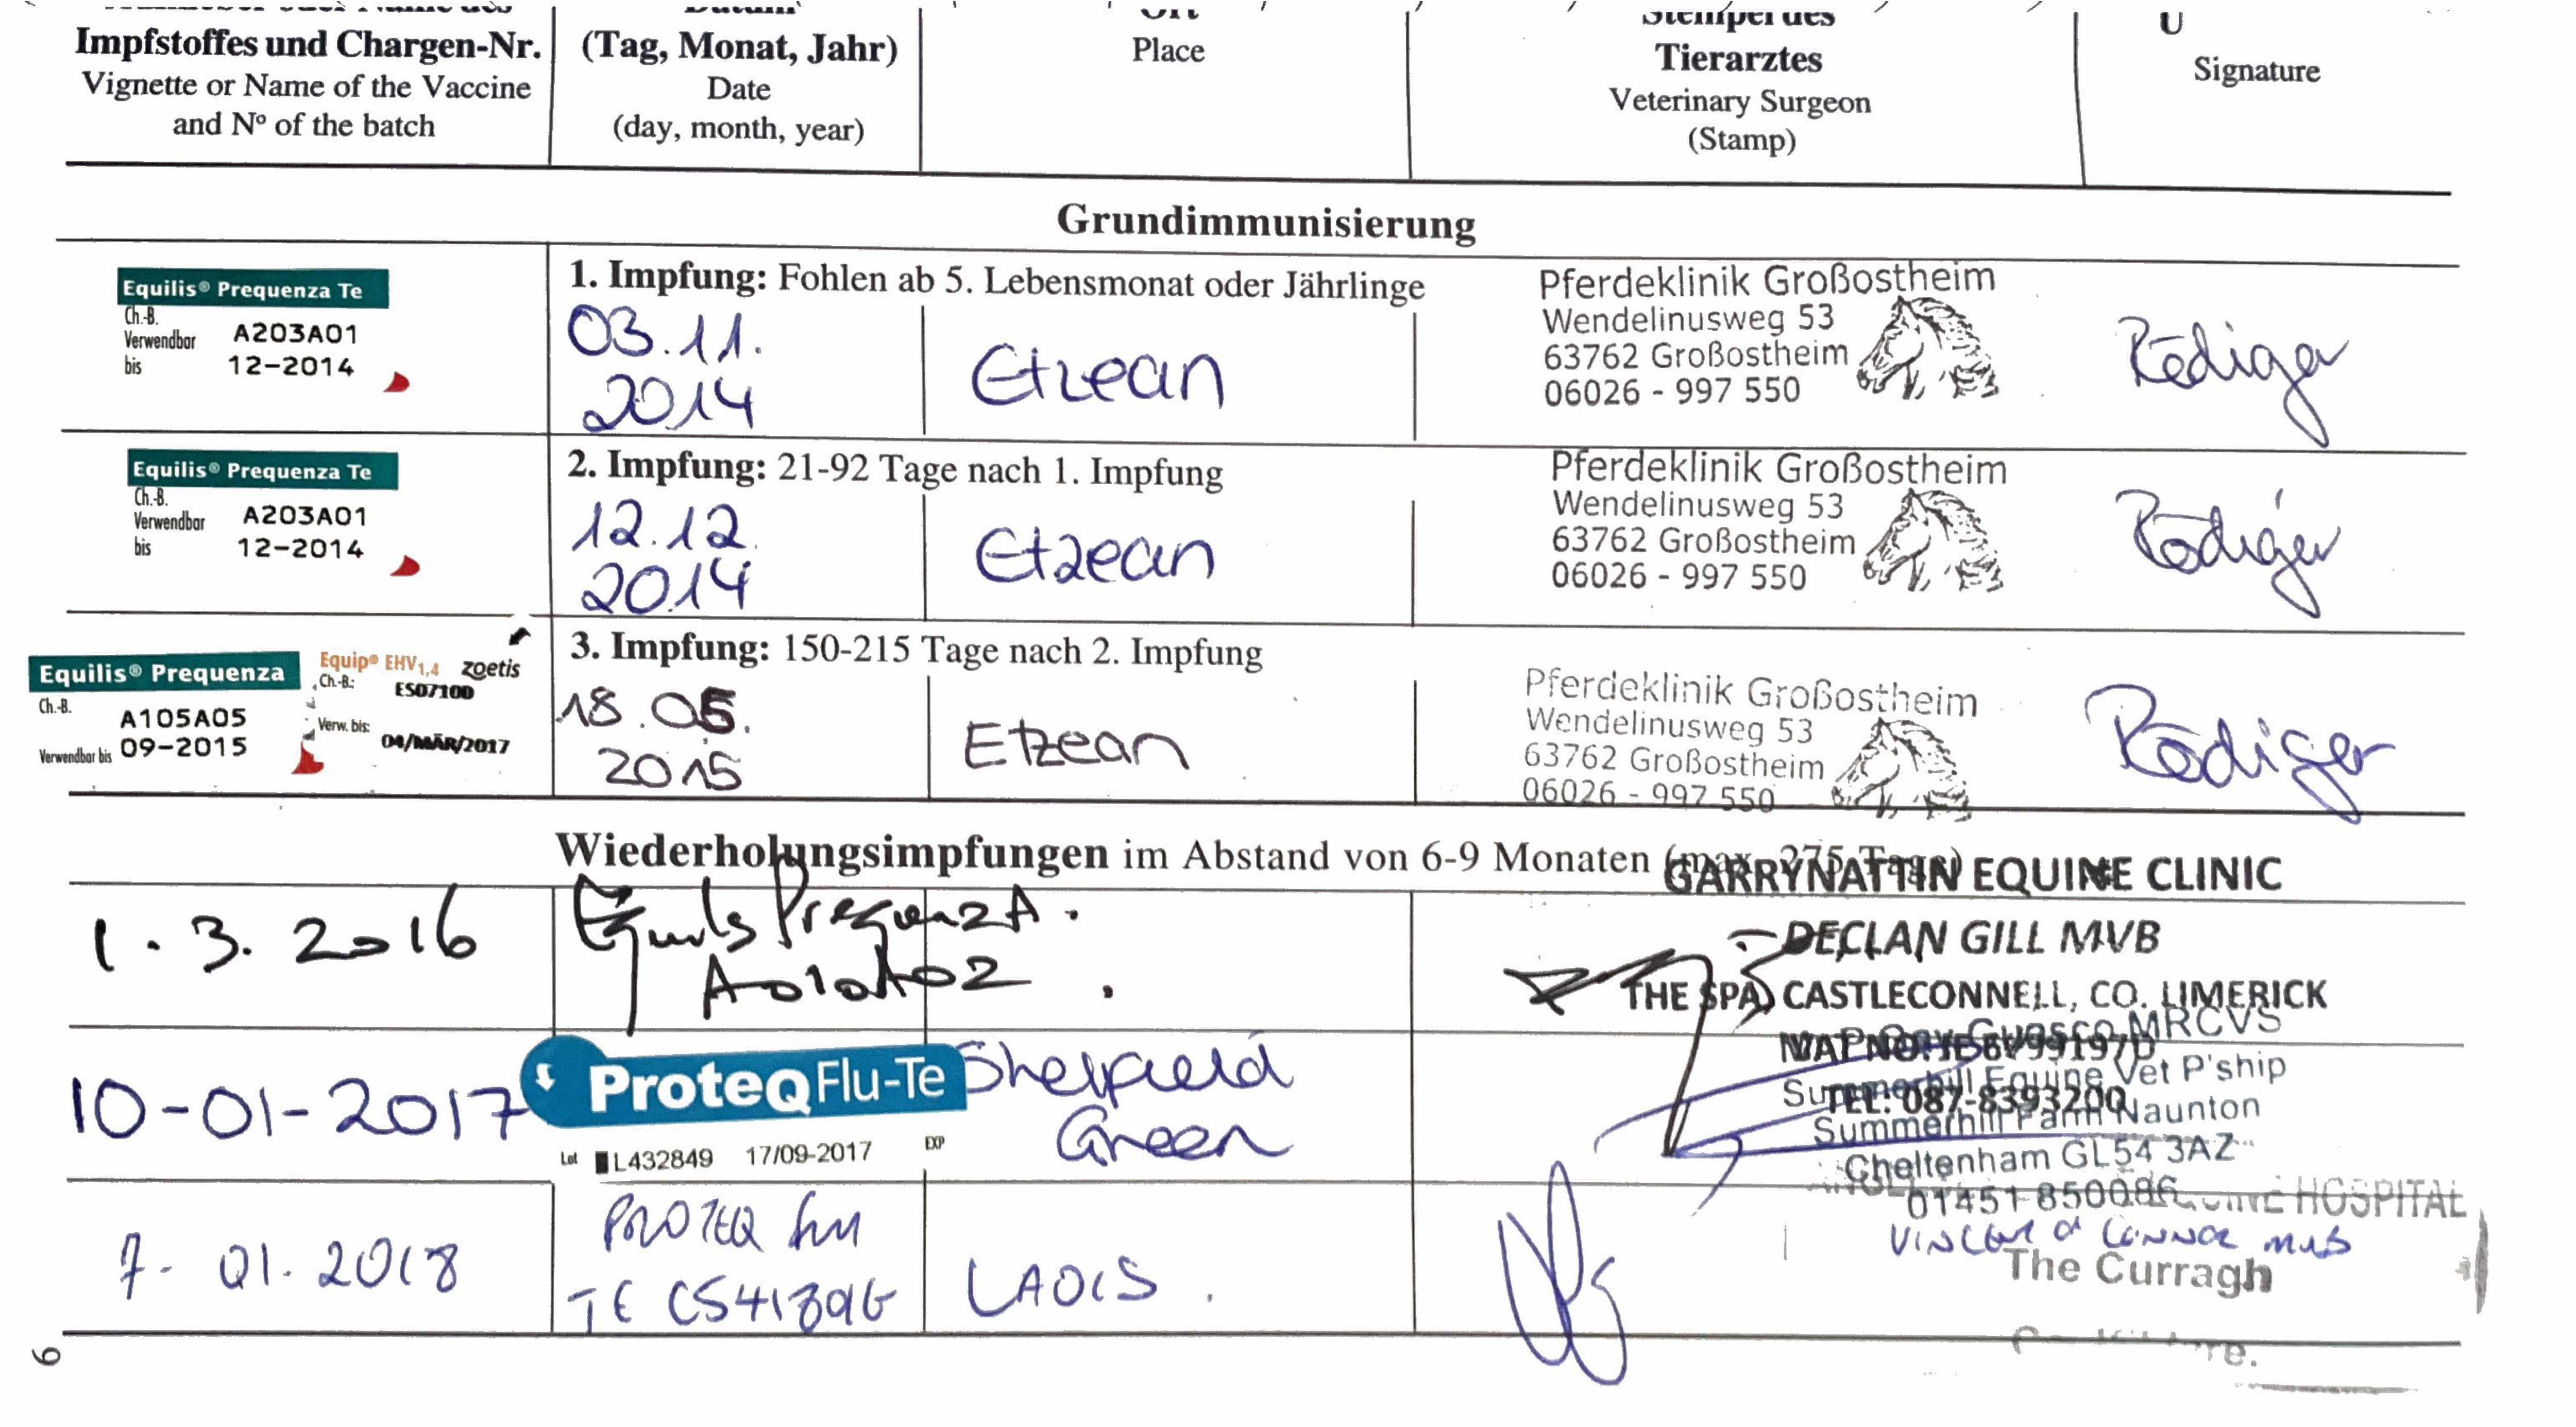 Impfstoffes und Chargen-Nr.
Vignette or Name of the Vaccine
and Nº of the batch
(Tag, Monat, Jahr)
Date
(day, month, year)
Ort
Place
Stempel des
Tierarztes
Veterinary Surgeon
(Stamp)
Signature
Grundimmunisierung
Equilis® Prequenza Te
Ch.-B.
Verwendbar A203A01
bis 12-2014
1. Impfung: Fohlen ab 5. Lebensmonat oder Jährlinge
03.11.
2014
Etzean
Pferdeklinik Großostheim
Wendelinusweg 53
63762 Großostheim
06026 - 997 550
Rödiger
Equilis® Prequenza Te
Ch.-B.
Verwendbar A203A01
bis 12-2014
2. Impfung: 21-92 Tage nach 1. Impfung
12.12.
2014
Etzean
Pferdeklinik Großostheim
Wendelinusweg 53
63762 Großostheim
06026 - 997 550
Rödiger
Equilis® Prequenza
Ch.-B.
A105A05
Verwendbar bis 09-2015
Equip® EHV1,4 zoetis
Ch.-B.: ES07100
Verw. bis:
04/MÄR/2017
3. Impfung: 150-215 Tage nach 2. Impfung
18.05.
2015
Etzean
Pferdeklinik Großostheim
Wendelinusweg 53
63762 Großostheim
06026 - 997 550
Rödiger
Wiederholungsimpfungen im Abstand von 6-9 Monaten (max. 275 Tage)
1.3.2016
Prequenza.
GARRYNATTIN EQUINE CLINIC
DECLAN GILL MVB
THE SPA, CASTLECONNELL, CO. LIMERICK
TEL: 087-8393200
10-01-2017
ProteqFlu-Te
Lot L432849 17/09-2017 EXP
Green
MRCVS
Summerhill Equine Vet P'ship
Summerhill Farm Naunton
Cheltenham GL54 3AZ
01451 850086
7-01.2018
PROTEQ flu
TE
LAOIS.
HOSPITAL
The Curragh
6